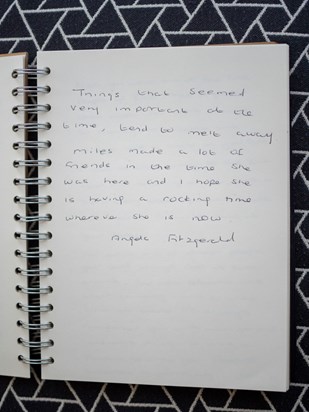 Things that seemed
very important at the
time, tend to melt away
miles made a lot of
friends in the time she
was here and I hope she
is having a rocking time
wherever she is now
Angela Fitzgerald